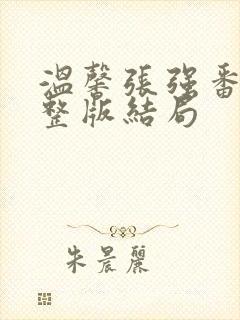 溫馨張强番
整版結局
朱晨麗